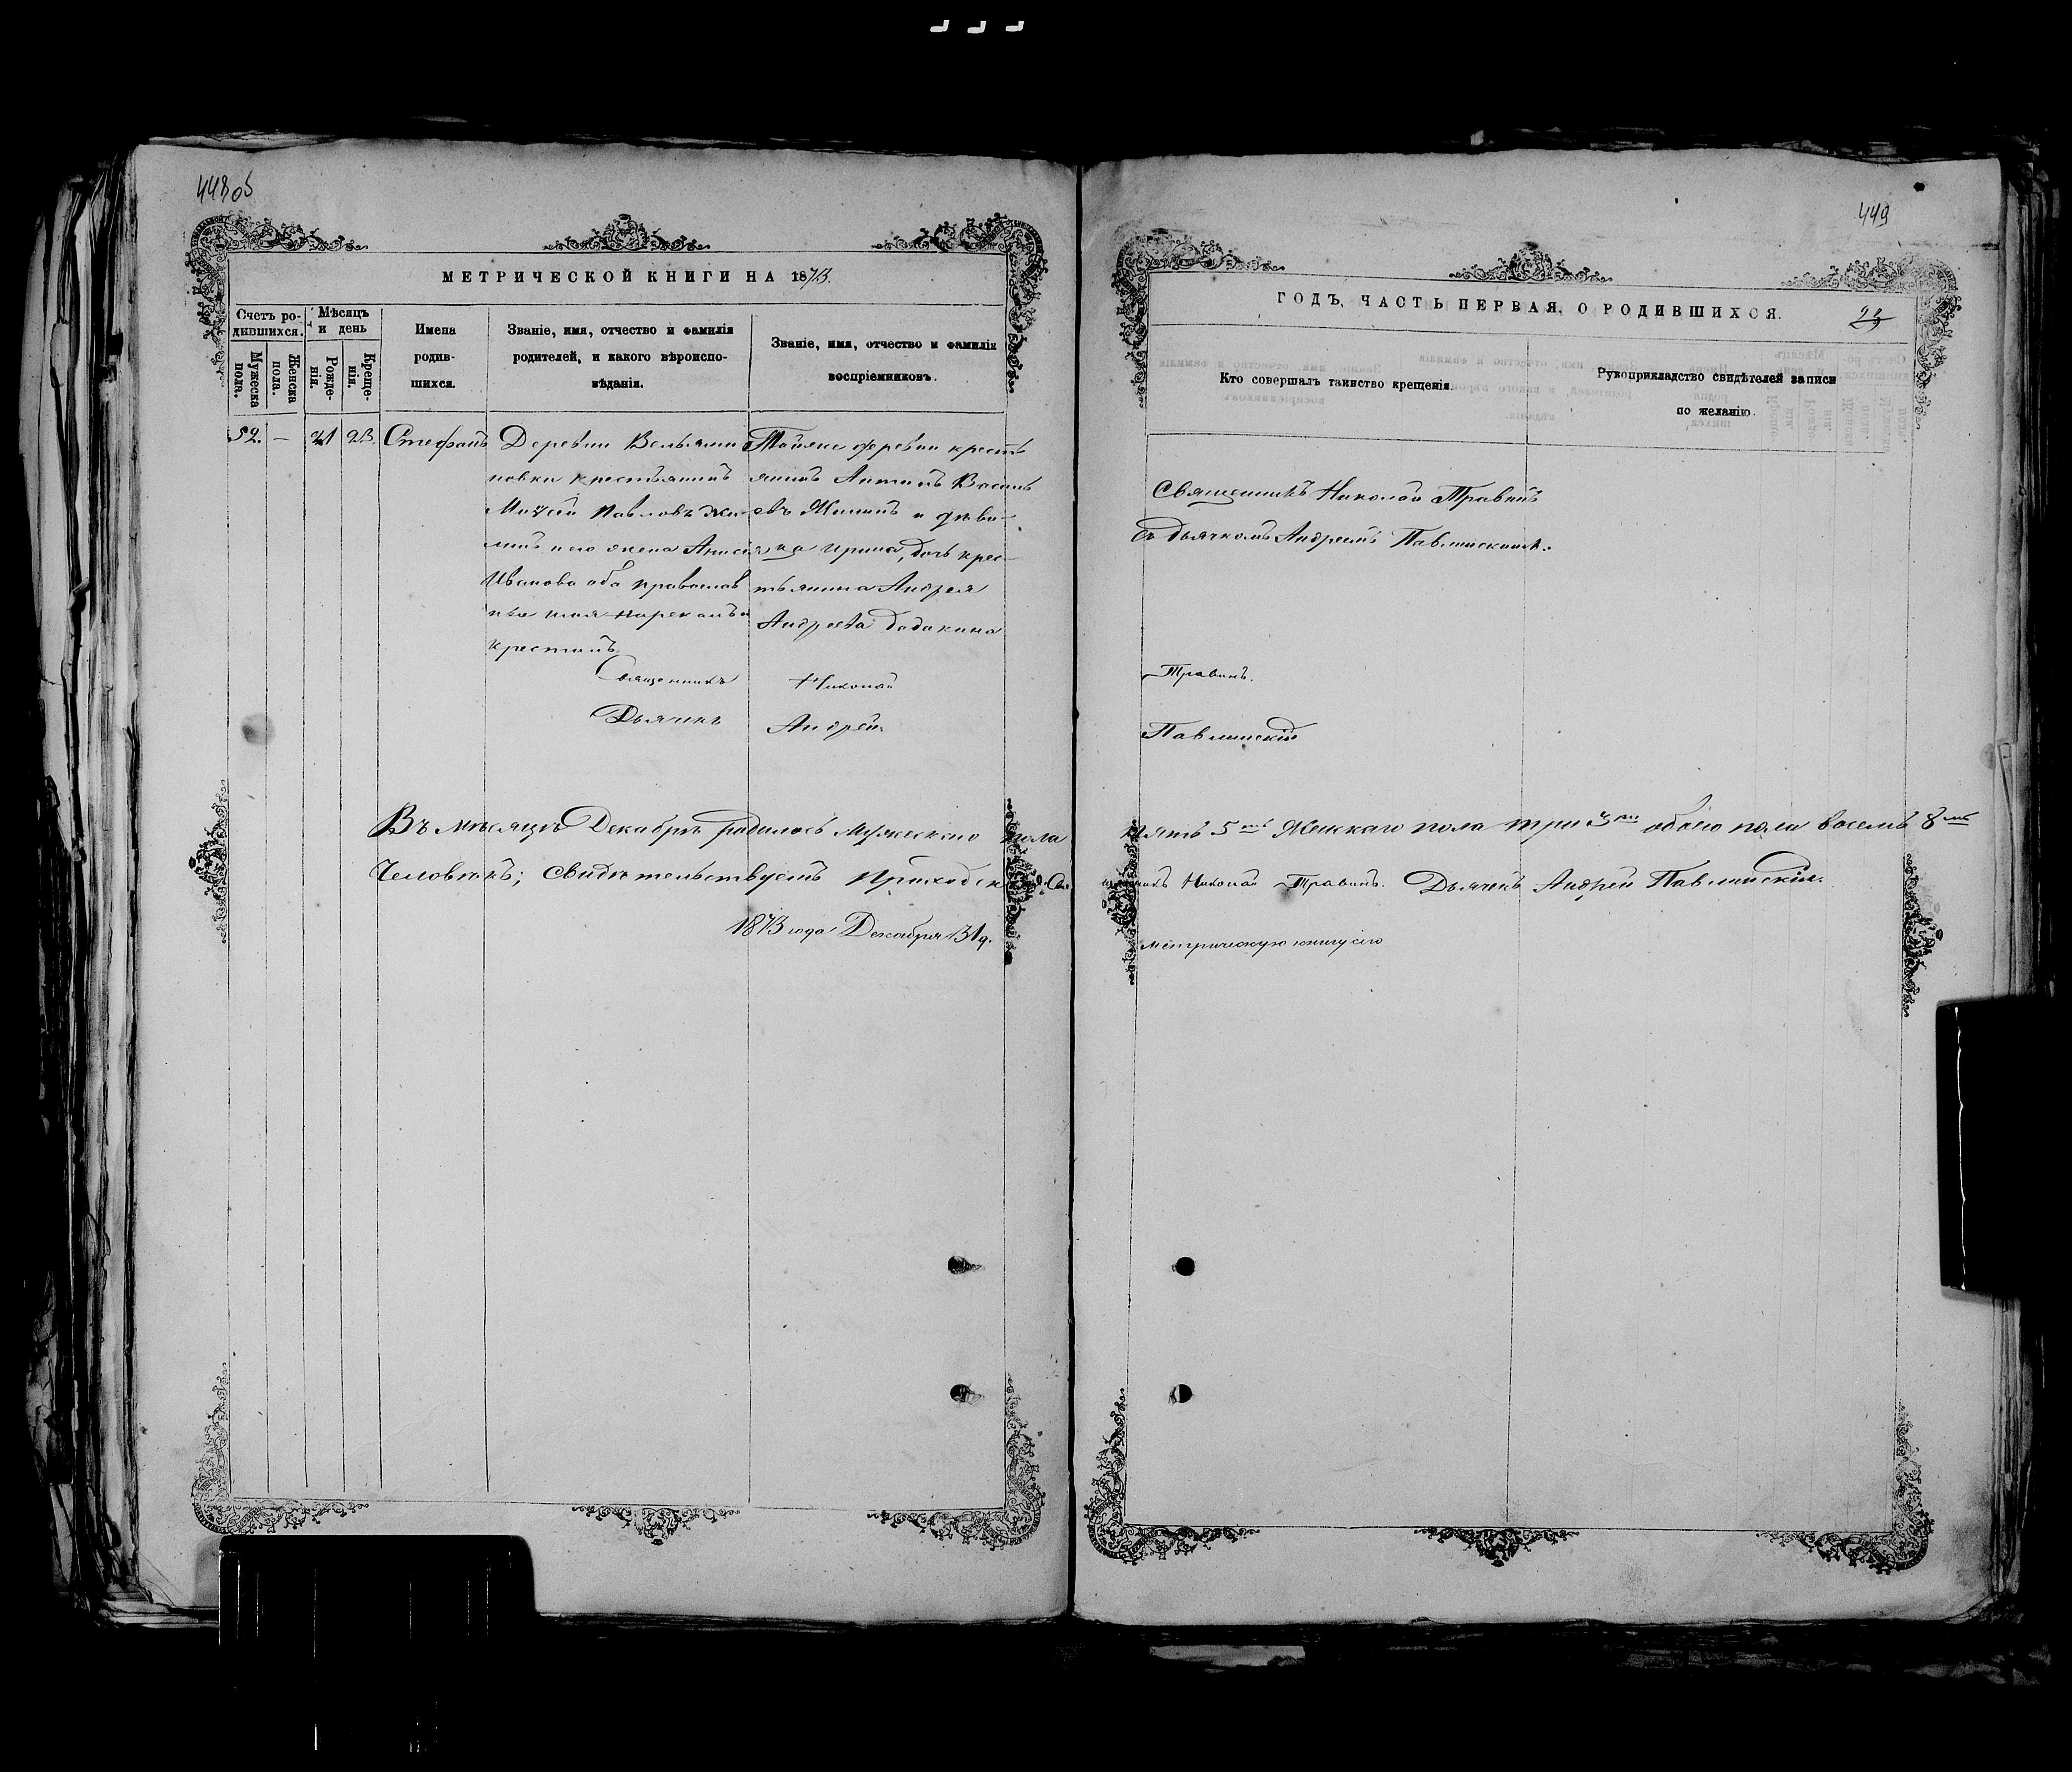 448 об
МЕТРИЧЕСКОЙ КНИГИ НА 1873.
Счетъ ро-
дившихся.
Мужеска пола.
Женска пола.
Мѣсяцъ
и день
Рожде-
нія.
Креще-
нія.
Имена
родив-
шихся.
Званіе, имя, отчество и фамилія
родителей, и какого вѣроиспо-
вѣданія.
Званіе, имя, отчество и фамилія
воспріемниковъ.
52. — 21 23. Стефанъ
Деревни Вельями
новки крестьянинъ
Моѵсей Павловъ Жи-
линъ и его жена Анисія
Иванова оба православ
крестилъ.
Тойже деревни кресть
янинъ Антипъ Василь
евъ Жилинъ и дѣви-
ца Ирина, дочь крес-
тьянина Андрея
Андреева
Священникъ Николай
Дьячикъ Андрей
Въ мѣсяцѣ Декабрѣ родилось Мужескаго пола
Человѣкъ; Свидѣтельствуетъ
1873 года Декабря 31 д.
449
ГОДЪ, ЧАСТЬ ПЕРВАЯ, О РОДИВШИХСЯ.
Кто совершалъ таинство крещенія.
Рукоприкладство свидѣтелей записи
по желанію.
Священникъ Николай Травинъ
съ дьячкомъ Андреемъ Павлинскимъ.
Травинъ.
Павлинскій
пять 5ть Женскаго пола три 3ри обоего пола восемь 8мь
Николай Травинъ. Дьячекъ Андрей Павлинскій.
метрическую книгу сію